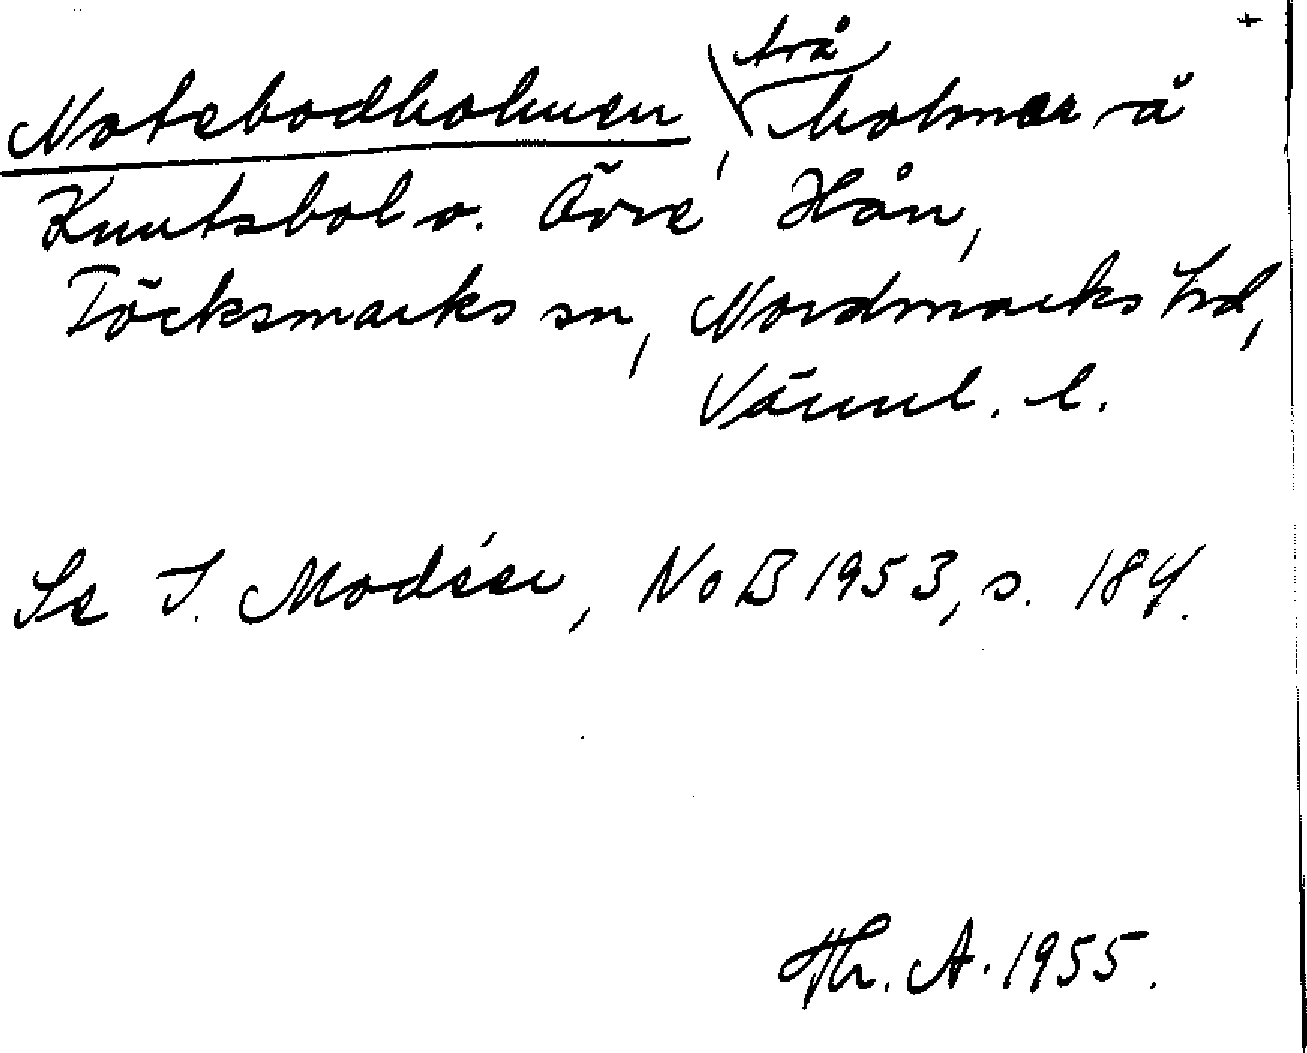 Notebodholmen, två holmar å
Knutsbol o. Övre Hån,
Töcksmarks sn, Nordmarks hd,
Värml. l.
Se I. Modéer, NoB 1953, s. 184.
Th. A. 1955.